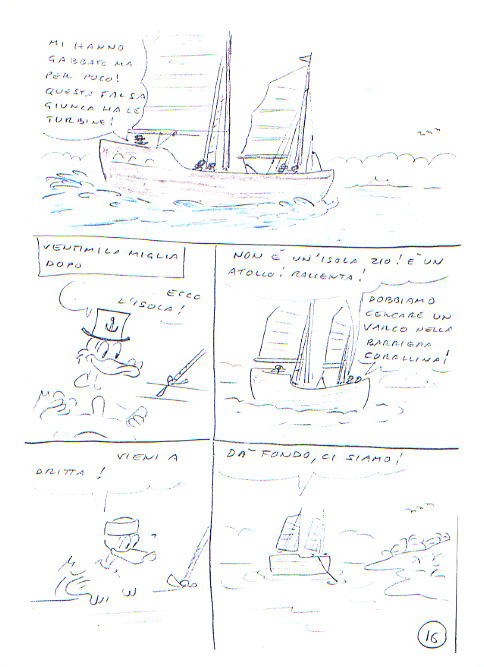 MI HANNO
GABBATO MA
PER POCO!
QUESTA FALSA
GIUNCA HA LE
TURBINE!
VENTIMILA MIGLIA
DOPO
ECCO
L'ISOLA!
NON È UN'ISOLA ZIO! È UN
ATOLLO! RALLENTA!
DOBBIAMO
CERCARE UN
VARCO NELLA
BARRIERA
CORALLINA!
VIENI A
DRITTA!
DA' FONDO, CI SIAMO!
16